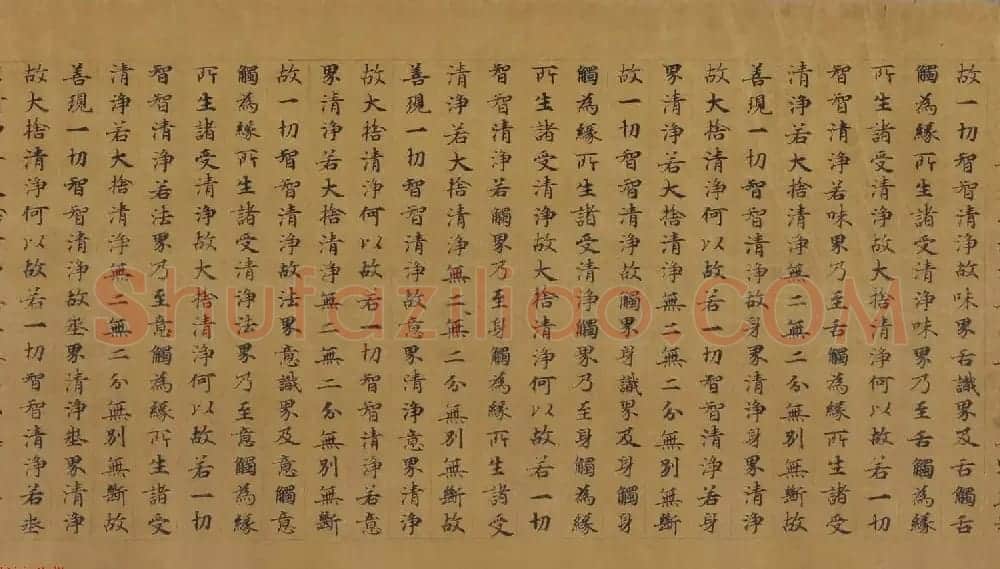 故一切智智清淨故味界舌識界及舌觸舌
觸為緣所生諸受清淨味界乃至舌觸為緣
所生諸受清淨故大捨清淨何以故若一切
智智清淨若味界乃至舌觸為緣所生諸受
清淨若大捨清淨無二無二分無別無斷故
善現一切智智清淨故身界清淨身界清淨
故大捨清淨何以故若一切智智清淨若身
界清淨若大捨清淨無二無二分無別無斷
故一切智智清淨故觸界身識界及身觸身
觸為緣所生諸受清淨觸界乃至身觸為緣
所生諸受清淨故大捨清淨何以故若一切
智智清淨若觸界乃至身觸為緣所生諸受
清淨若大捨清淨無二無二分無別無斷故
善現一切智智清淨故意界清淨意界清淨
故大捨清淨何以故若一切智智清淨若意
界清淨若大捨清淨無二無二分無別無斷
故一切智智清淨故法界意識界及意觸意
觸為緣所生諸受清淨法界乃至意觸為緣
所生諸受清淨故大捨清淨何以故若一切
智智清淨若法界乃至意觸為緣所生諸受
清淨若大捨清淨無二無二分無別無斷故
善現一切智智清淨故埊界清淨埊界清淨
故大捨清淨何以故若一切智智清淨若埊
Shufaziliao.COM